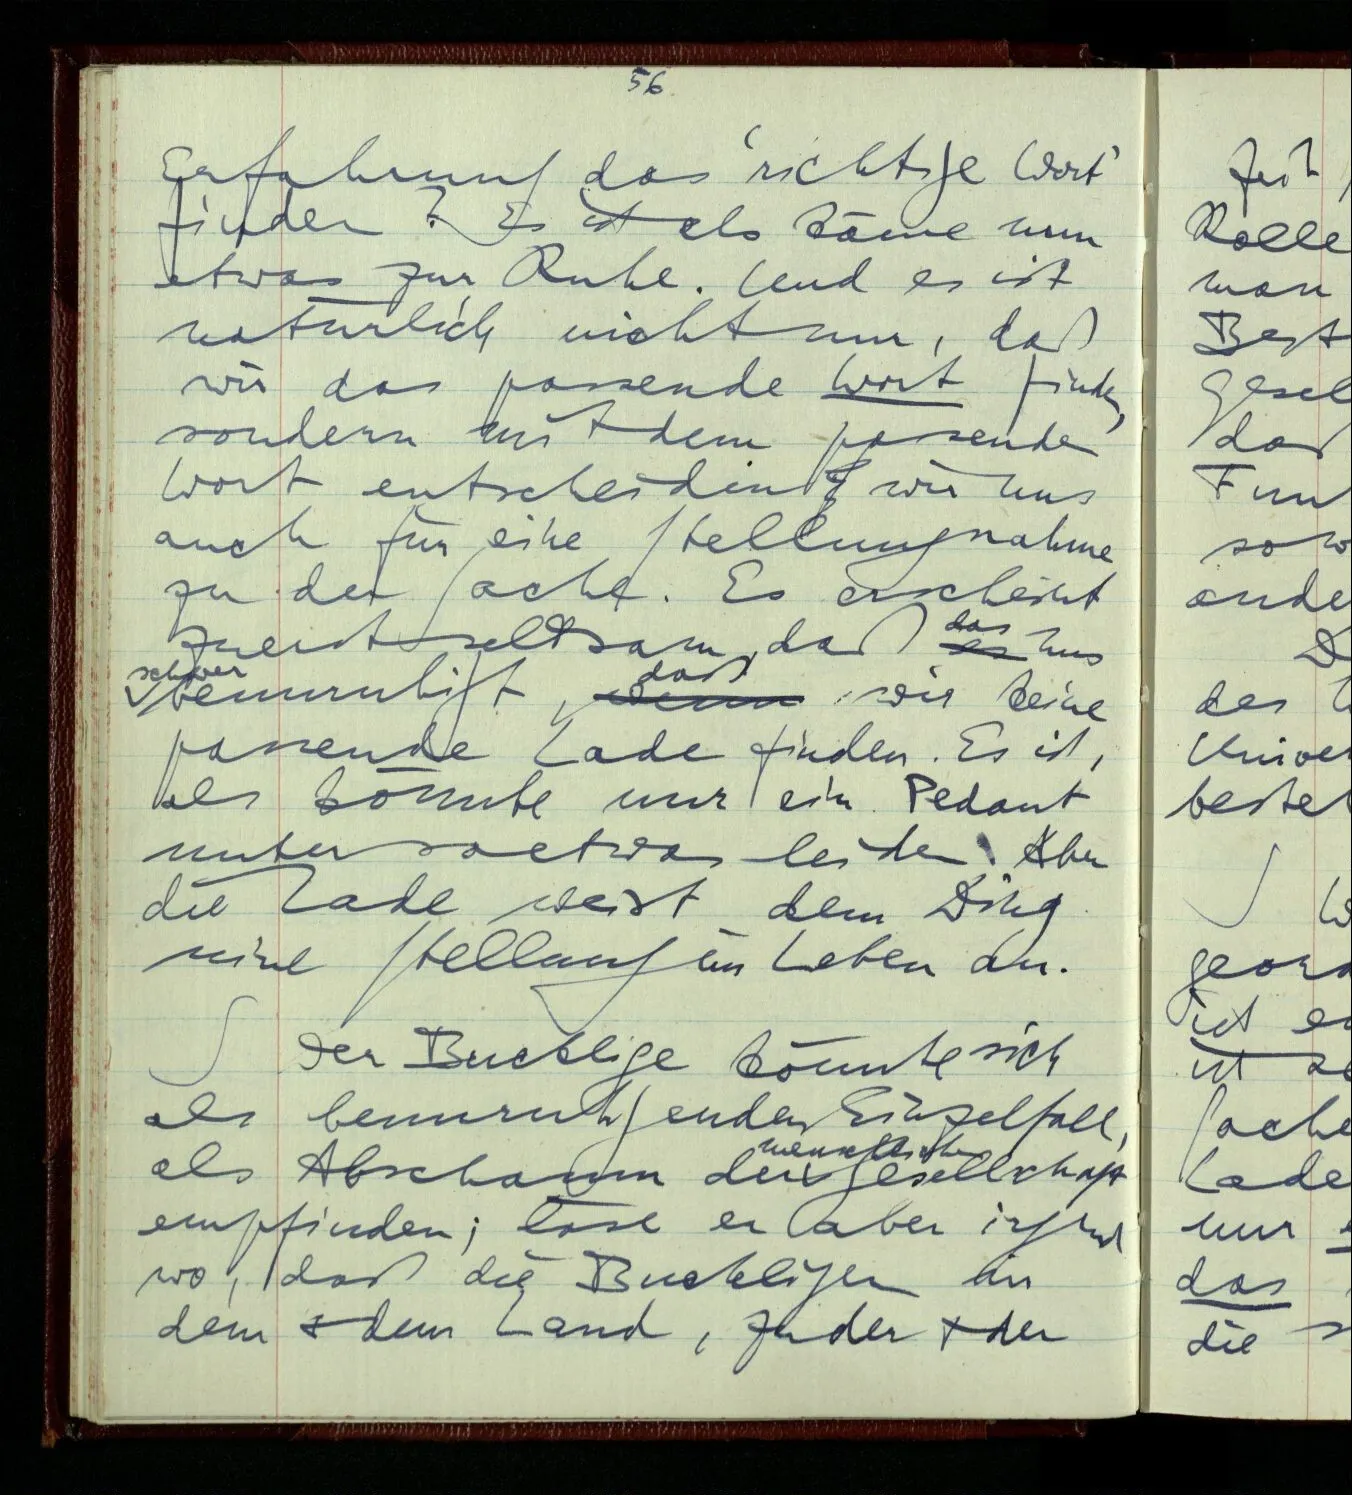 56
Erfahrung das 'richtige Wort'
finden? Es ist als käme nun
etwas zur Ruhe. Und es ist
natürlich nicht nur, daß
wir das passende Wort finden,
sondern mit dem passenden
Wort entscheiden wir uns
auch für eine Stellungnahme
zu der Sache. Es erscheint
zuerst seltsam, daß es das uns
schwer beunruhigt, wenn daß wir keine
passende Lade finden. Es ist,
als könnte nur ein Pedant
unter soetwas leiden. Aber
die Lade weist dem Ding
seine Stellung im Leben an.
∫ Der Bucklige könnte sich
als beunruhigenden Einzelfall,
als Abschaum der menschlichen Gesellschaft
empfinden; läse er aber irgend
wo, daß die Buckligen in
dem & dem Land, zu der & der
Zeit
Rolle
man
daß
sow
ande
des
Univer
die
ist
Lade
nur
das
die